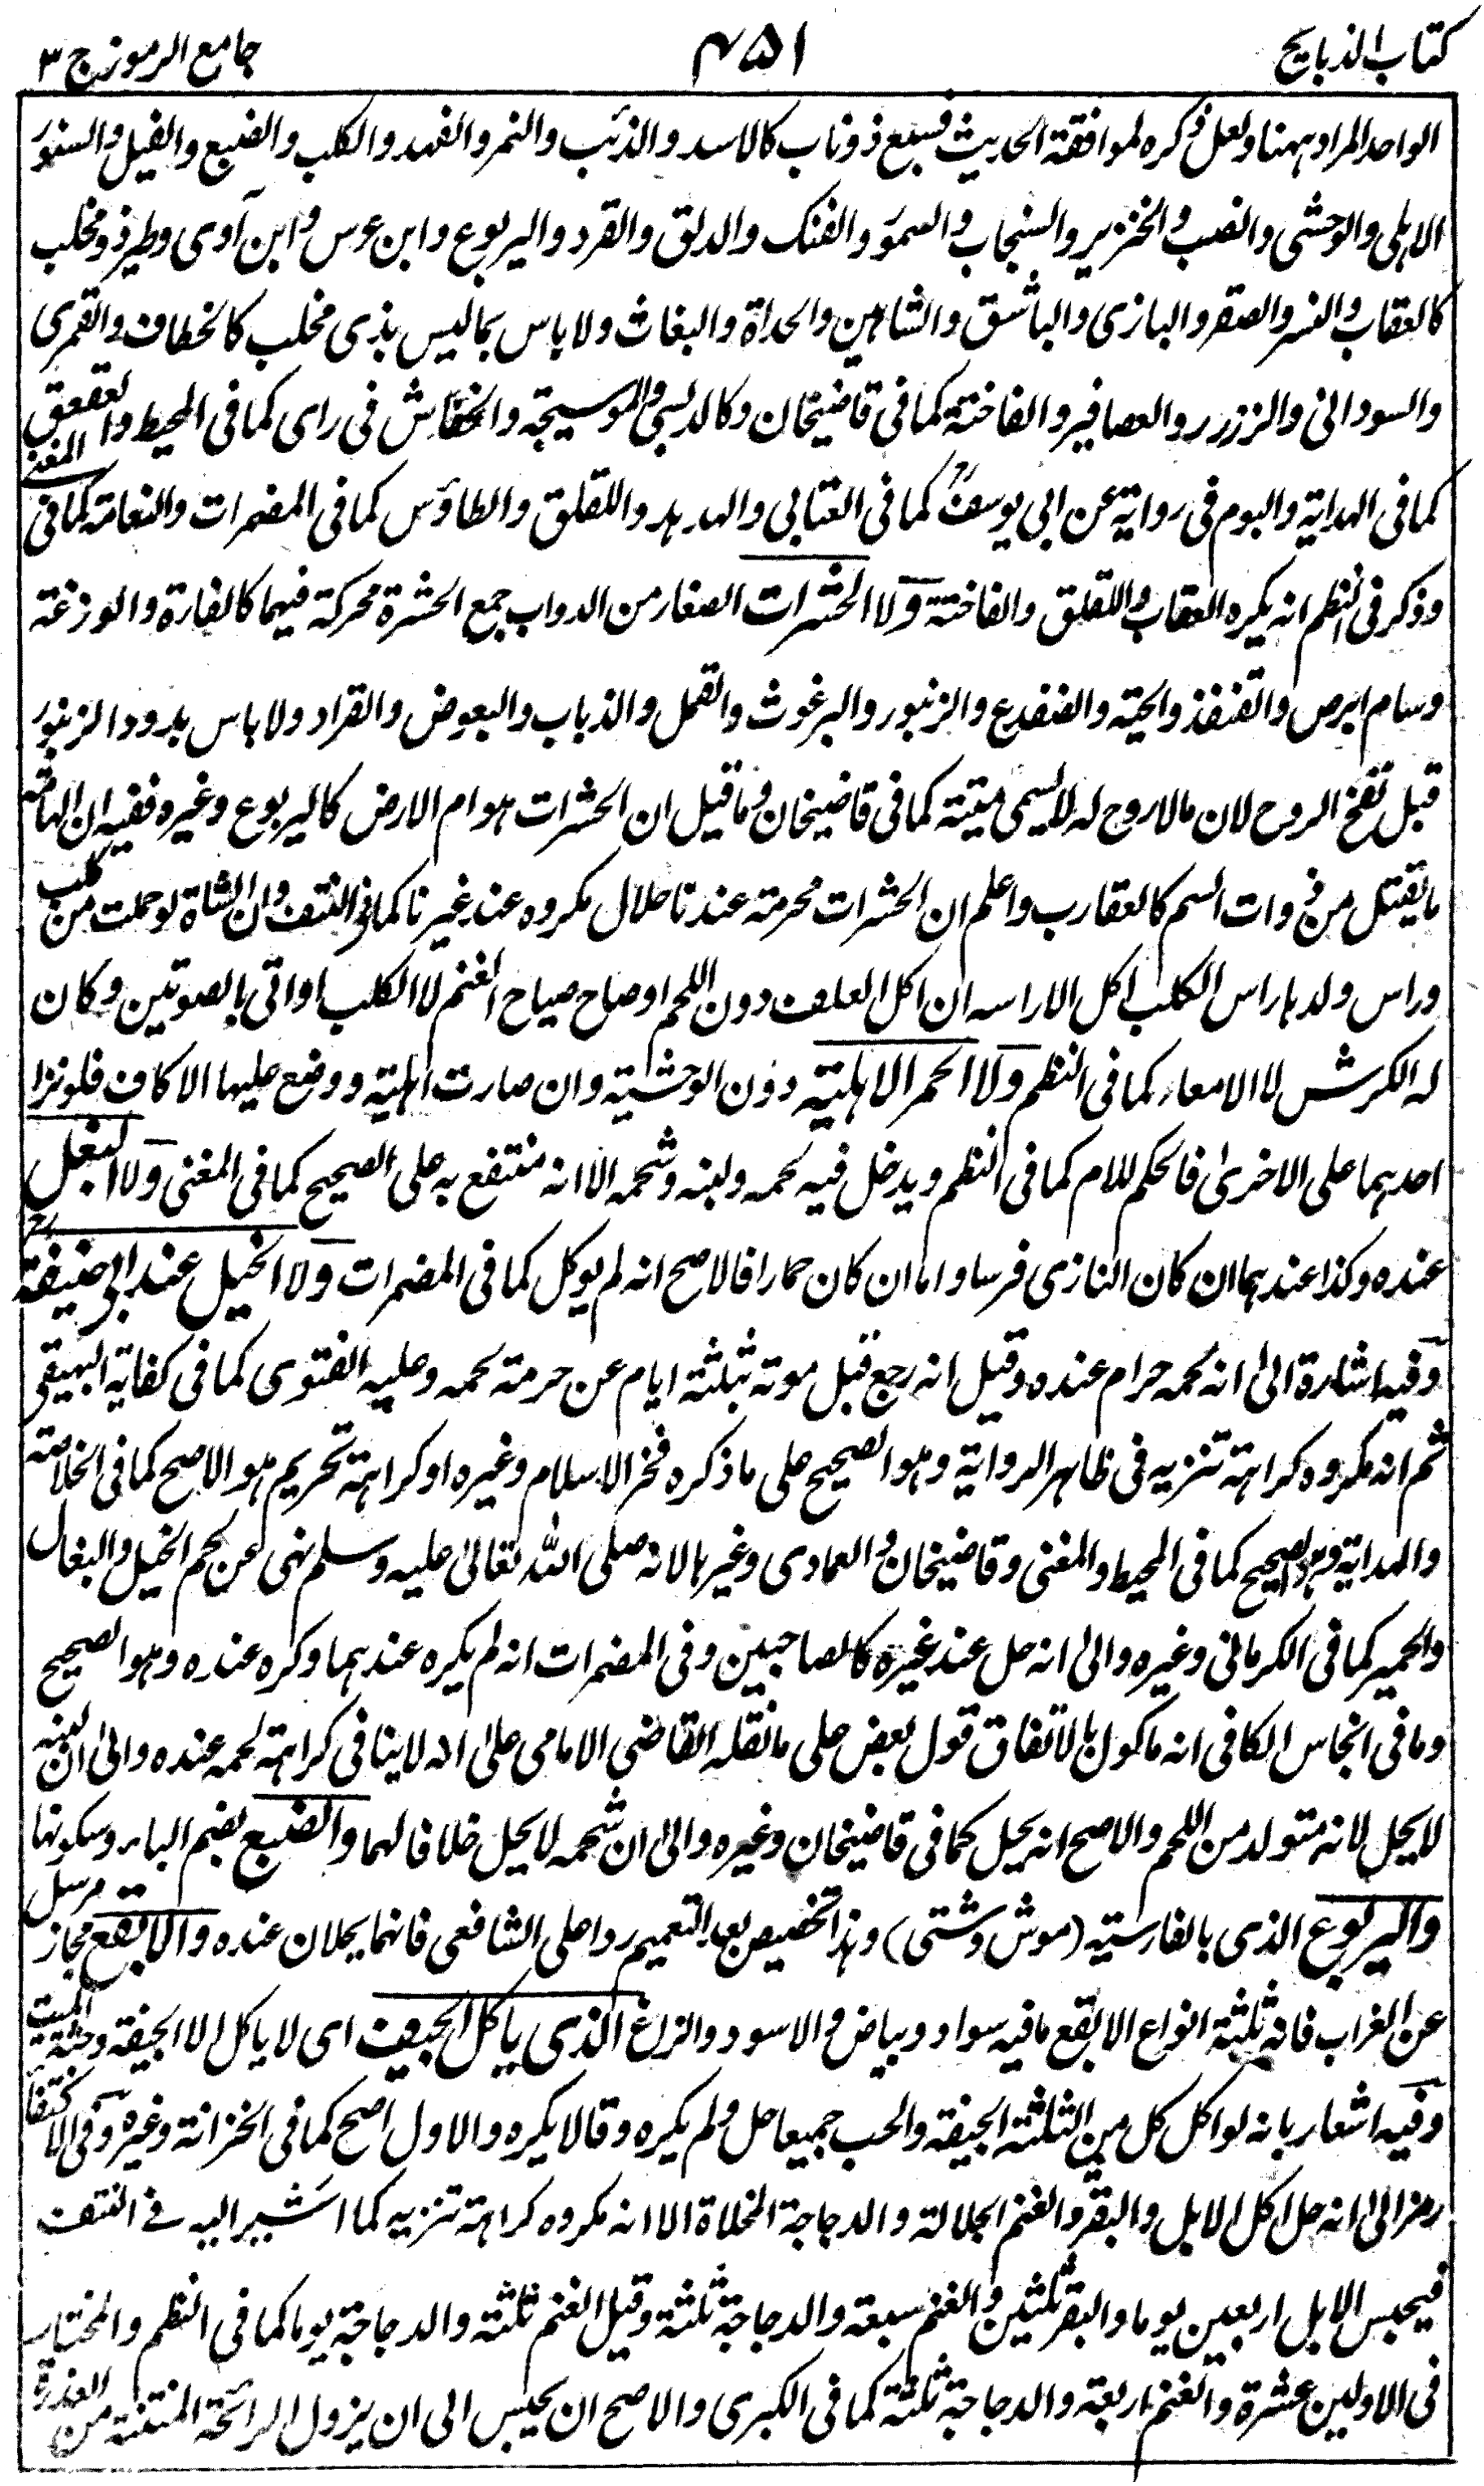 كتاب الذبايح
۴۵۱
جامع الرموز ج ۳
الواحد المراد ههنا ولعل ذكره لموافقة الحديث فسبع ذو ناب كالاسد والذئب والنمر والفهد والكلب والضبع والفيل والسنور
الاهلى والوحشى والضب والخنزير والسنجاب والسمور والفنك والدلق والقرد واليربوع وابن عرس وابن آوى وطير ذو مخلب
كالعقاب والنسر والصقر والبازى والباشق والشاهين والحداة والبغاث ولا باس بما ليس بذى مخلب كالخطاف والقمرى
والسودانى والزرزر والعصافير والفاختة كما فى قاضيخان وكالدبسى والموسيجة والخفاش فى راى كما فى المحيط والعقعق
كما فى الهداية والبوم فى رواية عن ابى يوسف رح كما فى العتابى والهدهد واللقلق والطاؤس كما فى المضمرات والنعامة كما فى المنعز
وذكر فى النظم انه يكره العقاب واللقلق والفاختة ولا الحشرات الصغار من الدواب جمع الحشرة محركة فيهما كالفارة والوزغة
وسام ابرص والقنفذ والحية والضفدع والزنبور والبرغوث والقمل والذباب والبعوض والقراد ولا باس بدود الزنبور
قبل نفخ الروح لان مالا روح له لا يسمى ميتة كما فى قاضيخان وما قيل ان الحشرات هوام الارض كاليربوع وغيره ففيه ان الهامة
ما يقتل من ذوات السم كالعقارب واعلم ان الحشرات محرمة عندنا حلال مكروه عند غيرنا كما فى النتف وان الشاة لو حملت من كلب
وراس ولدها راس الكلب اكل الا راسه ان اكل العلف دون اللحم او صاح صياح الغنم لا الكلب او اتى بالصوتين وكان
له الكرش لا الامعاء كما فى النظم ولا الحمر الاهلية دون الوحشية وان صارت اهلية ووضع عليها الاكاف فلو نزا
احدهما على الاخرى فالحكم للام كما فى النظم ويدخل فيه لحمه ولبنه وشحمه الا انه منتفع به على الصحيح كما فى المغنى ولا البغل
عنده وكذا عندهما ان كان النازى فرسا واما ان كان حمارا فالاصح انه لم يوكل كما فى المضمرات ولا الخيل عند ابى حنيفة رح
وفيه اشارة الى انه لحمه حرام عنده وقيل انه رجع قبل موته بثلثة ايام عن حرمة لحمه وعليه الفتوى كما فى كفاية البيهقى
ثم انه مكروه كراهة تنزيه فى ظاهر الرواية وهو الصحيح على ما ذكره فخر الاسلام وغيره او كراهة تحريم هو الاصح كما فى الخلاصة
والهداية وهو الصحيح كما فى المحيط والمغنى وقاضيخان والعمادى وغيرها لانه صلى الله تعالى عليه وسلم نهى عن لحم الخيل والبغال
والحمير كما فى الكرمانى وغيره والى انه حل عند غيره كالصاحبين وفى المضمرات انه لم يكره عندهما وكره عنده وهو الصحيح
وما فى انجاس الكافى انه ماكول بالاتفاق قول بعض على ما نقله القاضى الامامى على انه لا ينافى كراهة لحمه عنده والى ان لبنه
لا يحل لانه متولد من اللحم والاصح انه يحل كما فى قاضيخان وغيره والى ان شحمه لا يحل خلافا لهما والضبع بضم الباء وسكونها
واليربوع الذى بالفارسية (موش دشتى) وهذا تخصيص بعد التعميم ردا على الشافعى فانهما يحلان عنده والابقع مجاز مرسل
عن الغراب فانه ثلثة انواع الابقع ما فيه سواد وبياض والاسود والزاغ الذى ياكل الجيف اى لا ياكل الا الجيفة وجثة الميت
وفيه اشعار بانه لو اكل كل من الثلثة الجيفة والحب جميعا حل ولم يكره وقالا يكره والاول اصح كما فى الخزانة وغيره وفى الاكتفاء
رمز الى انه حل اكل الابل والبقر والغنم الجلالة والدجاجة المخلاة الا انه مكروه كراهة تنزيه كما اشير اليه فى النتف
فيحبس الابل اربعين يوما والبقر ثلثين والغنم سبعة والدجاجة ثلثة وقيل الغنم ثلثة والدجاجة يوما كما فى النظم والمختار
فى الاولين عشرة والغنم اربعة والدجاجة ثلثة كما فى الكبرى والاصح ان يحبس الى ان يزول الرائحة المنتنة من العذرة